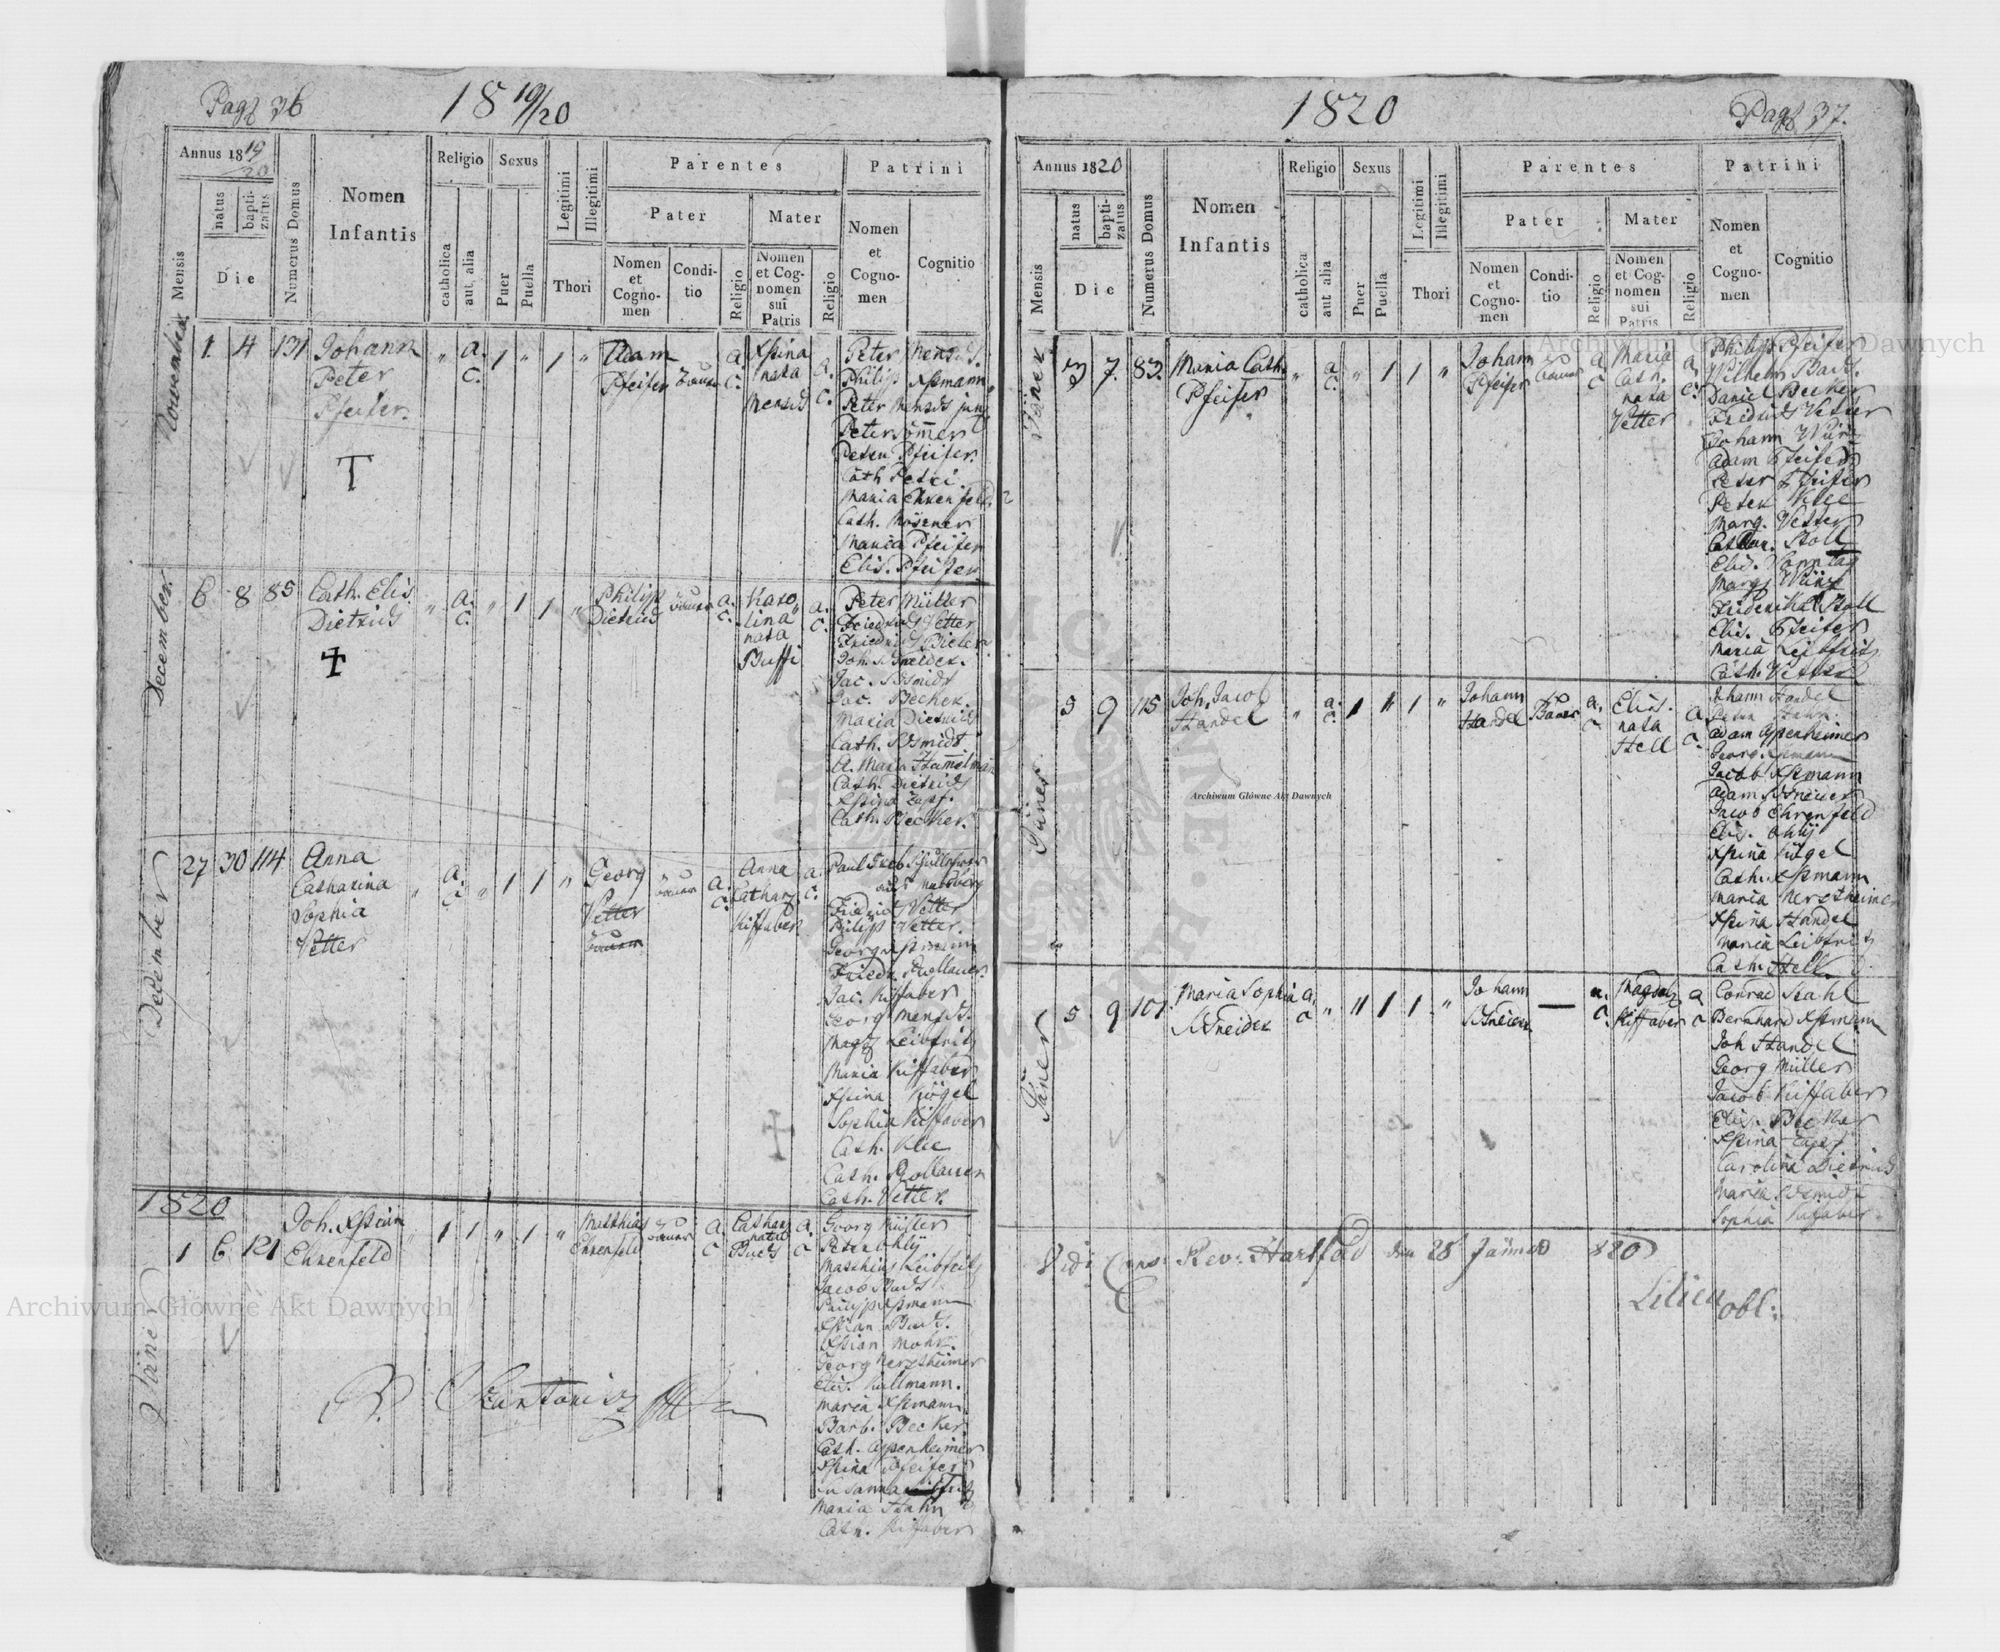 Pag 36
18 19/20
Annus 18 19
20
Mensis
natus
bapti-
zatus
Die
Numerus Domus
Nomen
Infantis
Religio
catholica
aut alia
Sexus
Puer
Puella
Legitimi
Illegitimi
Thori
Parentes
Pater
Nomen
et
Cogno-
men
Condi-
tio
Religio
Mater
Nomen
et Cog-
nomen
sui
Patris
Religio
Patrini
Nomen
et
Cogno-
men
Cognitio
November
1. 4 131
Johann
Peter
Pfeifer.
" a. c. 1 " 1 "
Adam
Pfeifer
Bauer
a. c.
Xstina
nata
Mensch
a. c.
Peter Mensch.
Philipp Xstmann
Peter Mensch jun
Peter Sommer
Peter Pfeifer.
Cath Petri.
Maria Ehrenfeld
Cath. Mosener
Maria Pfeifer
Elis. Pfeifer
December.
6 8 85
Cath. Elis.
Dietrich
" a. c. " 1 1 "
Philipp
Dietrich
Bauer
a. c.
Karo
lina
nata
Buffi
a. c.
Peter Müller
Friedrich Vetter
Joh. Schneider.
Jac. Schmidt
Jac. Becker.
Maria Dietrich
Cath. Schmidt
A. Maria Hammelman
Cath. Dietrich
Xstina Zapf.
Cath. Becker.
December
27 30 114
Anna
Catharina
Sophia
Vetter
" a. c. " 1 1 "
Georg
Vetter
Bauer
Bauer
a. c.
Anna
Cathar
Kiffaber
a. c.
Fridrich Vetter
Philipp Vetter.
Georg Xstmann
Jac. Kiffaber
Georg Mensch.
Magd Leibfritz
Maria Kiffaber
Xstina Kügel
Sophia Kiffaber
Cath. Klee
Cath. Vetter.
1820
Jäner
1 6 121
Joh. Xstian
Ehrenfeld
" 1 1 " 1 "
Matthias
Ehrenfeld
Bauer
a. c.
Cathar
nata
Buch
a. c.
Georg Müller
Peter Ohly
Matthias Leibfritz
Jacob Bach
Philipp Xstmann
Xstian Bach.
Xstian Mohr.
Georg Merzheimer
Elis. Kullmann.
Maria Xstmann.
Barb. Becker
Cath. Appenheimer
Xstina Pfeifer
Maria Hahn
Cath. Kiffaber
1820
Pag 37.
Annus 1820
Mensis
natus
bapti-
zatus
Die
Numerus Domus
Nomen
Infantis
Religio
catholica
aut alia
Sexus
Puer
Puella
Legitimi
Illegitimi
Thori
Parentes
Pater
Nomen
et
Cogno-
men
Condi-
tio
Religio
Mater
Nomen
et Cog-
nomen
sui
Patris
Religio
Patrini
Nomen
et
Cogno-
men
Cognitio
Jäner
3 7. 83.
Maria Cath.
Pfeifer
" a. c. " 1 1 "
Johann
Pfeifer
Bauer
a c
Maria
Cath.
nata
Vetter
a. c.
Philipp Pfeifer
Wilhelm Bach.
Daniel Becker
Friedrich Vetter
Johann Würz
Adam Pfeifer
Peter Pfeifer
Peter Klee
Marg. Vetter
Cathar. Stoll
Elis. Sonntag
Marg. Würz
Friderika Stoll
Elis. Pfeifer
Maria Leibfritz
Cath. Vetter
Jäner
5 9 115
Joh. Jacob
Handel
" a. c. 1 " 1 "
Johann
Handel
Bauer
a. c
Elis.
nata
Hell
a. c.
Johann Handel
Adam Appenheimer
Georg Xstmann
Jacob Xstmann
Adam Schneider
Jacob Ehrenfeld
Elis. Ohly
Xstina Kügel
Cath. Xstmann
Maria Merzheimer
Xstina Handel
Maria Leibfritz
Cath. Hell
Jäner
5 9 101.
Maria Sophia
Schneider
a. c " " 1 1 "
Johann
Schneider
—
a. c.
Magdal
Kiffaber
a c
Conrad Stahl
Bernhard Xstmann
Joh Handel
Georg Müller
Jacob Kiffaber
Elis. Becker
Xstina Zapf
Carolina Dietrich
Maria Schmidt
Sophia Kiffaber
Vidi Rev: Hartfeld den 28 Jänner 820
Archiwum Główne Akt Dawnych
Archiwum Główne Akt Dawnych
Archiwum Główne Akt Dawnych